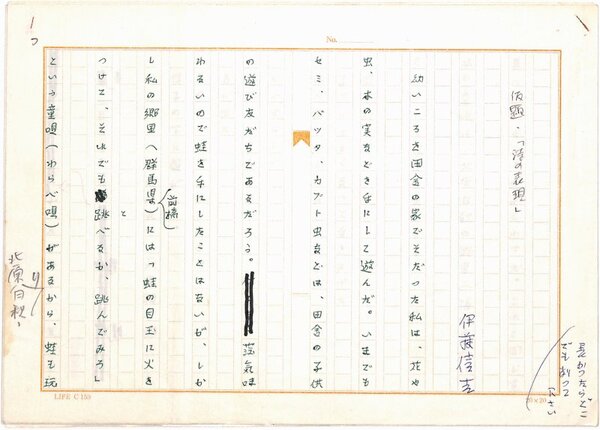 No.
長かつたらどこ
でも切つて
下さい
仮題・「詩の表現」
伊藤信吉
幼いころを田舎の家でそだった私は、花や
虫、木の実などを手にして遊んだ。いまでも
セミ、バッタ、カブト虫などは、田舎の子供
の遊び友だちであるだろう。薄気味
わるいので蛙を手にしたことはないが、しか
前橋
し私の郷里(群馬県)には「蛙の目玉に火を
と
つけて、それでも跳べるか、跳んでみろ」
という童唄(わらべ唄)があるから、蛙も玩
北原白秋、
LIFE C 153
20×20